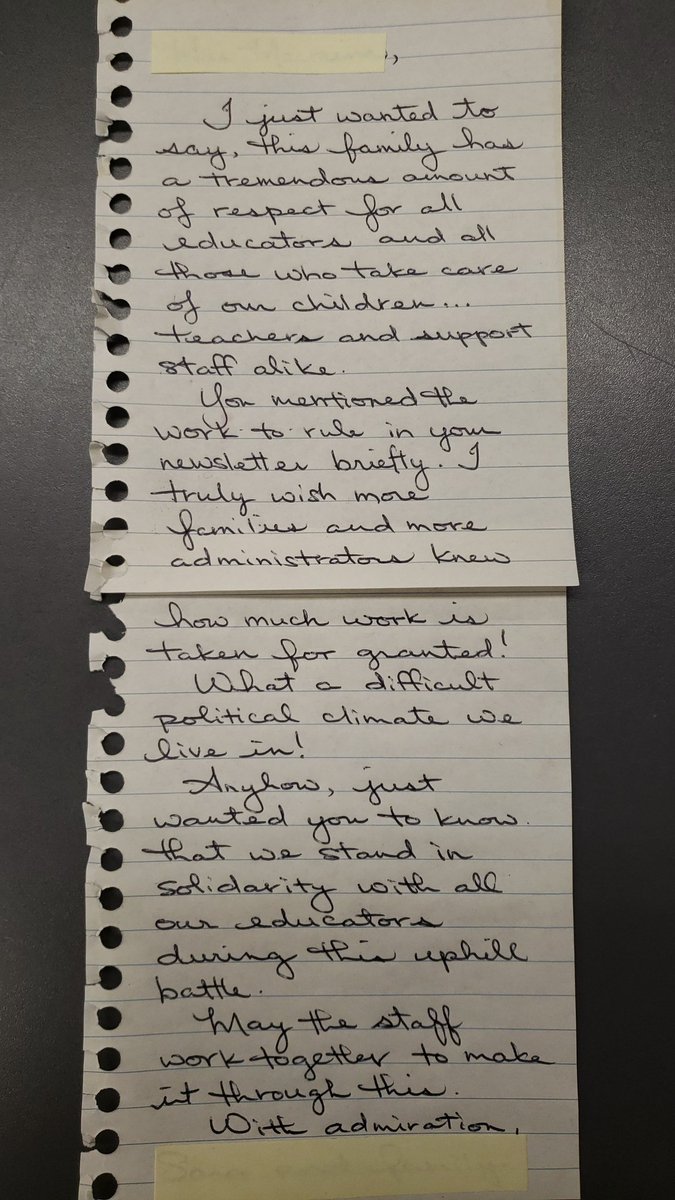 ,
I just wanted to
say, this family has
a tremendous amount
of respect for all
educators and all
those who take care
of our children...
teachers and support
staff alike.
You mentioned the
work-to-rule in your
newsletter briefly. I
truly wish more
families and more
administrators knew
how much work is
taken for granted!
What a difficult
political climate we
live in!
Anyhow, just
wanted you to know
that we stand in
solidarity with all
our educators
during this uphill
battle.
May the staff
work together to make
it through this.
With admiration,